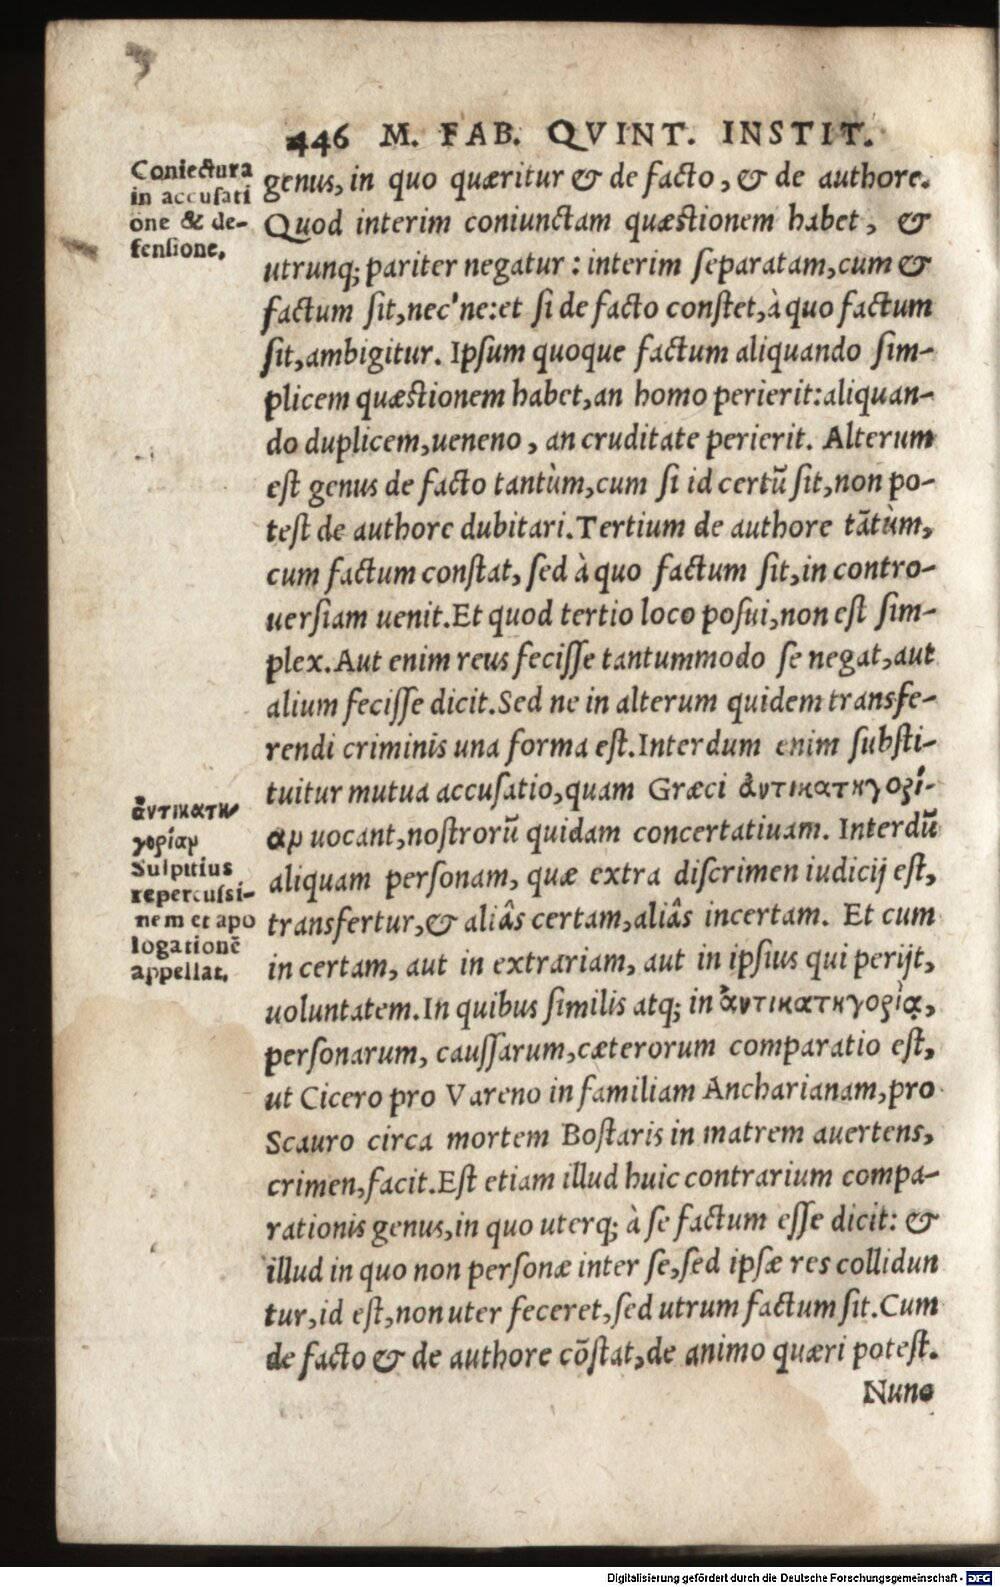 446 M. FAB. QVINT. INSTIT.
Coniectura
in accusati
one & de-
fensione.
genus, in quo quæritur & de facto, & de authore.
Quod interim coniunctam quæstionem habet, &
utrunq; pariter negatur: interim separatam, cum &
factum sit, nec'ne: et si de facto constet, à quo factum
sit, ambigitur. Ipsum quoque factum aliquando sim-
plicem quæstionem habet, an homo perierit: aliquan-
do duplicem, ueneno, an cruditate perierit. Alterum
est genus de facto tantùm, cum si id certũ sit, non po-
test de authore dubitari. Tertium de authore tãtùm,
cum factum constat, sed à quo factum sit, in contro-
uersiam uenit. Et quod tertio loco posui, non est sim-
plex. Aut enim reus fecisse tantummodo se negat, aut
alium fecisse dicit. Sed ne in alterum quidem transfe-
rendi criminis una forma est. Interdum enim substi-
tuitur mutua accusatio, quam Græci ἀντικατηγορί-
αν uocant, nostrorũ quidam concertatiuam. Interdũ
aliquam personam, quæ extra discrimen iudicij est,
transfertur, & aliâs certam, aliâs incertam. Et cum
in certam, aut in extrariam, aut in ipsius qui perijt,
uoluntatem. In quibus similis atq; in ἀντικατηγορίᾳ,
personarum, caussarum, cæterorum comparatio est,
ut Cicero pro Vareno in familiam Ancharianam, pro
Scauro circa mortem Bostaris in matrem auertens,
crimen, facit. Est etiam illud huic contrarium compa-
rationis genus, in quo uterq; à se factum esse dicit: &
illud in quo non personæ inter se, sed ipsæ res collidun
tur, id est, non uter feceret, sed utrum factum sit. Cum
de facto & de authore cõstat, de animo quæri potest.
Nunc
ἀντικατη
γορίαν
Sulpitius
repercussi-
nem et apo
logationẽ
appellat.
Digitalisierung gefördert durch die Deutsche Forschungsgemeinschaft - DFG